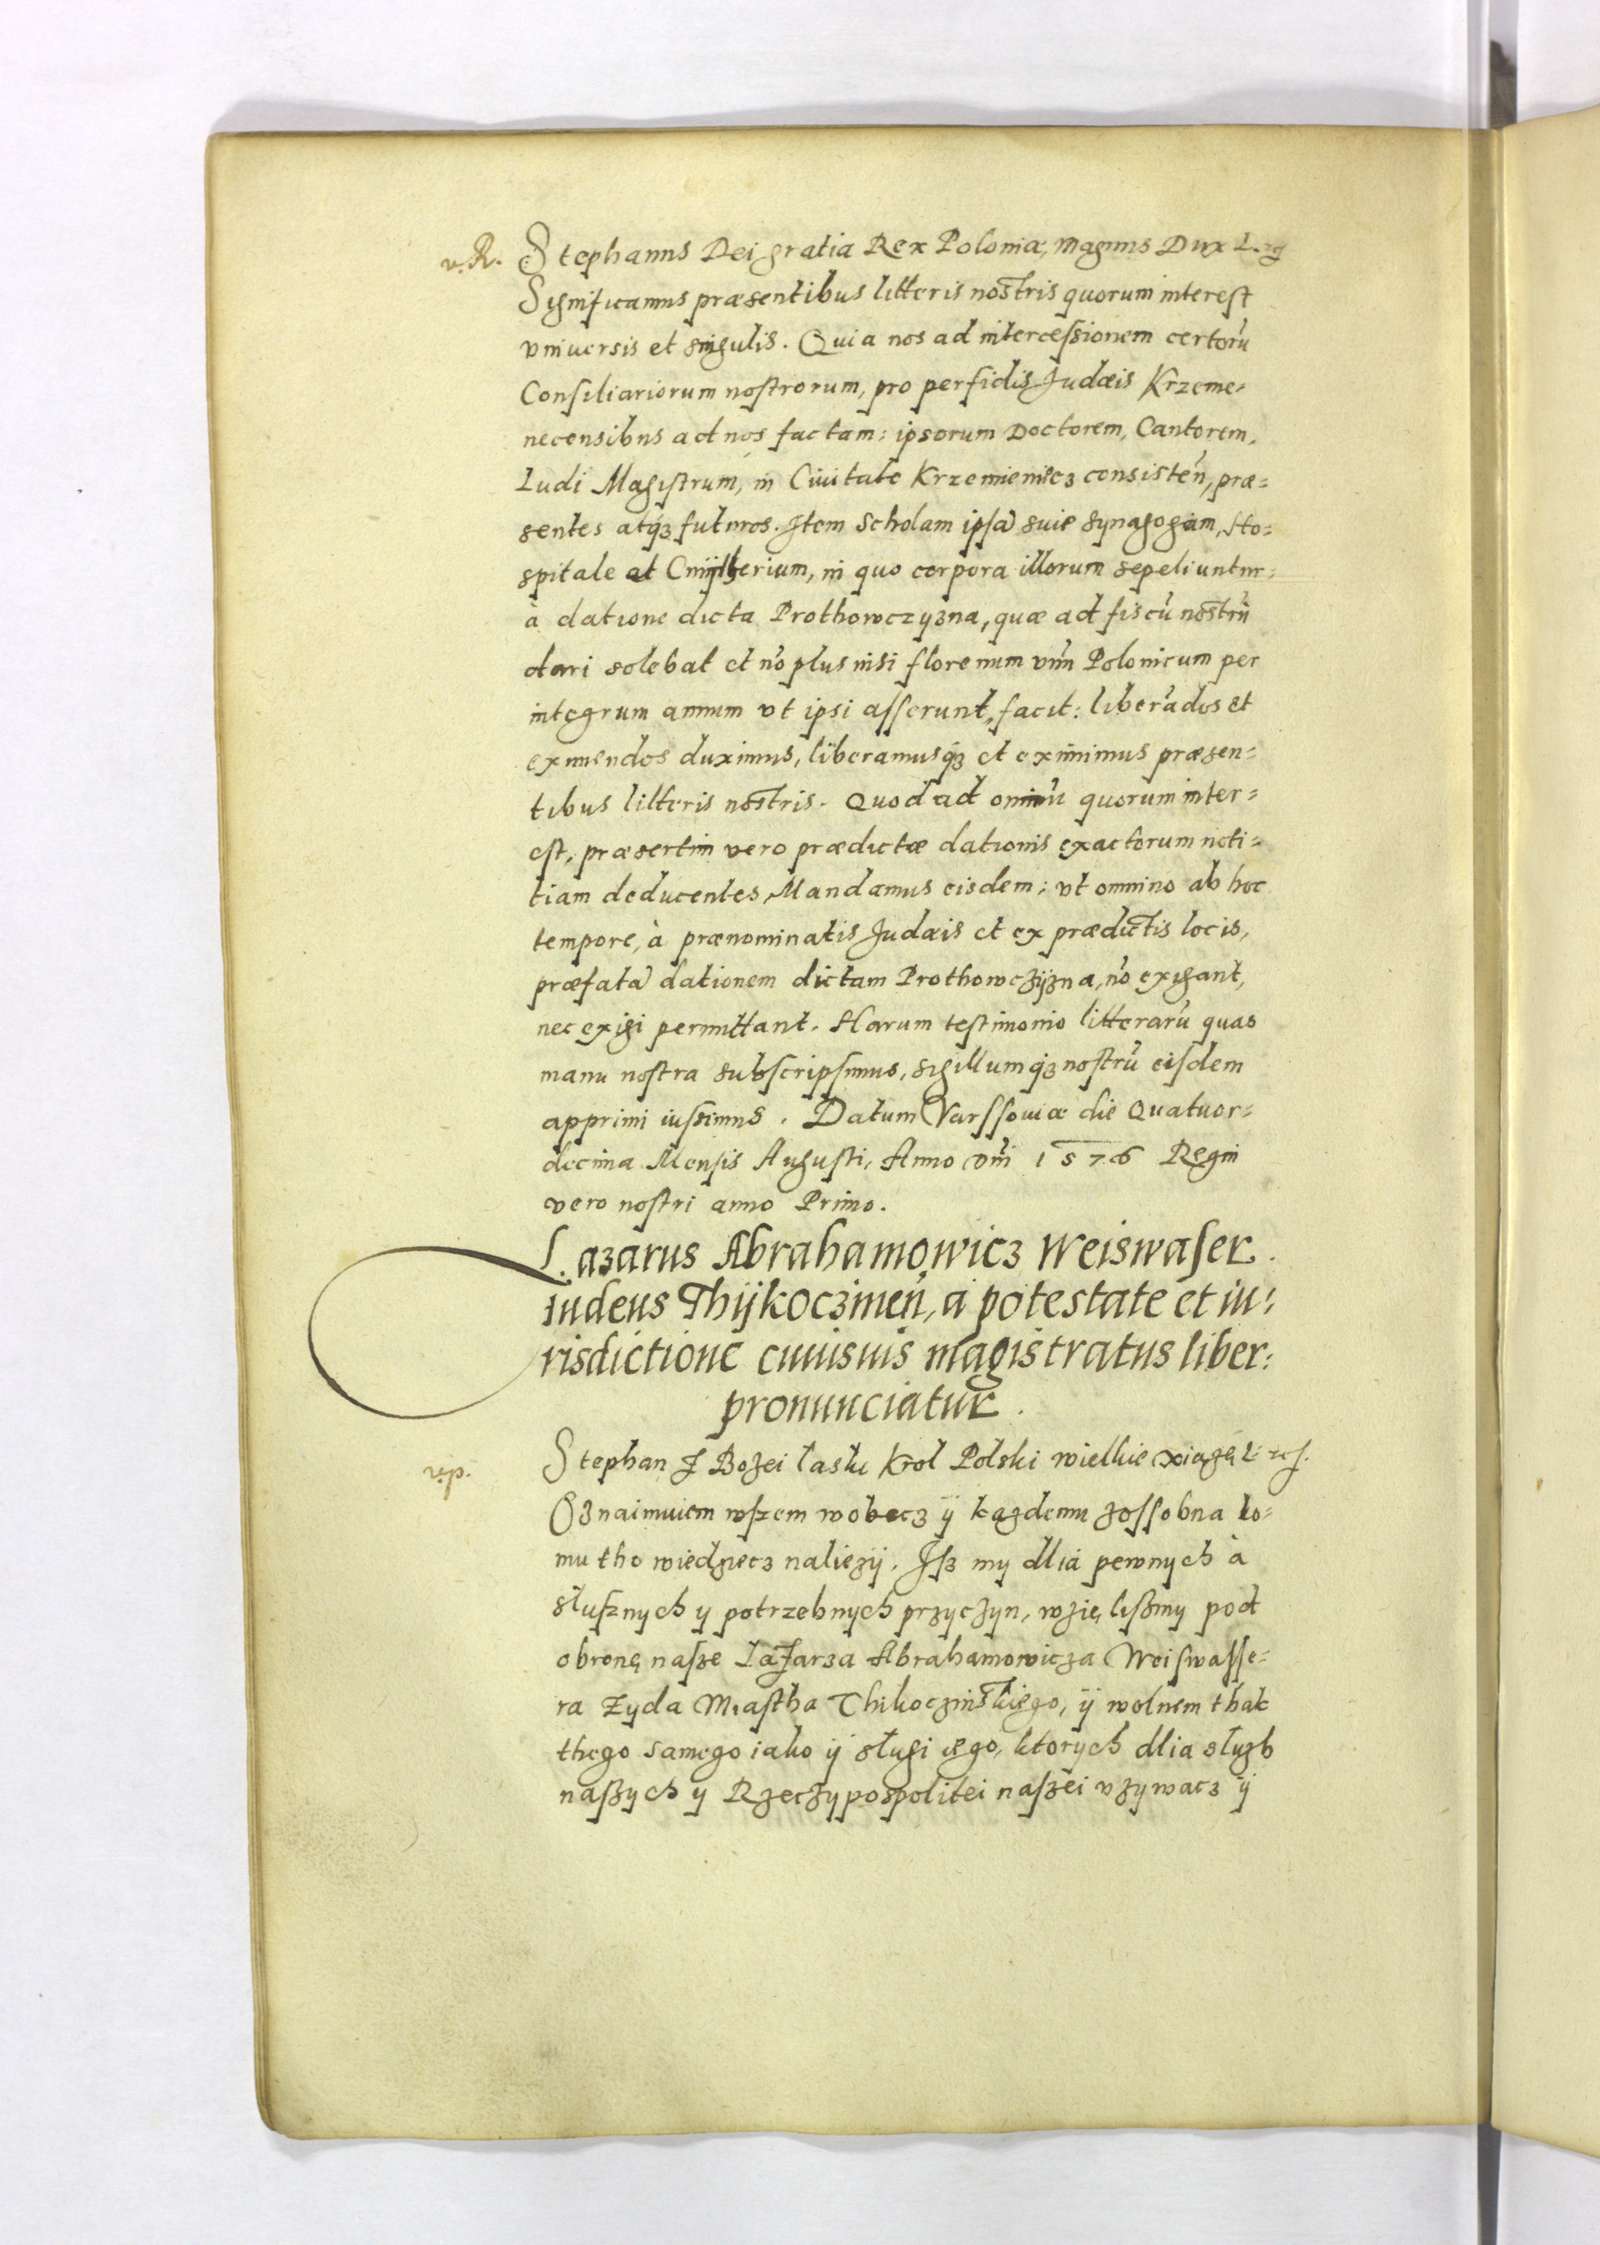 v. R. Stephanus Dei gratia Rex Poloniæ, Magnus Dux L.
Significamus præsentibus litteris nostris quorum interest
vniuersis et singulis. Quia nos ad intercessionem certorū
Consiliariorum nostrorum, pro perfidis Judæis Krzeme-
necensibus ad nos factam: ipsorum Doctorem, Cantorem,
Ludi Magistrum, in Ciuitate Krzemieniecz consisteñ, præ-
sentes atq3 futuros. Item Scholam ipsā siue Synagogam, Ho-
spitale et Cmijtherium, in quo corpora illorum sepeliuntur:
à datione dicta Prothowczyzna, quæ ad fiscū nostrū
dari solebat et nō plus nisi florenum vnū Polonicum per
integrum annum vt ipsi asserunt, facit: liberādos et
eximendos duximus, liberamusq3 et eximimus præsen-
tibus litteris nostris. Quod ad omniū quorum inter-
est, præsertim vero prædictæ dationis exactorum noti-
tiam deducentes, Mandamus eisdem: vt omnino ab hoc
tempore, à prænominatis Judæis et ex prædictis locis,
præfatā dationem dictam Prothowczijzna, nō exigant,
nec exigi permittant. Harum testimonio litterarū quas
manu nostra subscripsimus, sigillumq3 nostrū eisdem
apprimi iussimus. Datum Varssouiæ die Quatuor-
decima Mensis Augusti, Anno Dñi 1576 Regni
vero nostri anno Primo.
Lazarus Abrahamowicz Weiswaser
iudeus Thijkoczineñ, a potestate et iu-
risdictione cuiusuis magistratus liber
pronunciatur.
v. p. Stephan Z Bożei łaski Krol Polski wielkie xiążę L.
Oznaimuiem wszem wobecz ÿ każdemu zossobna ko-
mu tho wiedziecz należÿ. Isz my dlia pewnych à
słusznych y potrzebnych przyczyn, wzięlismy pod
obronę nasze Lazarza Abrahamowicza Weiswasse-
ra Zyda Miastha Thikoczinskiego, ÿ wolnem thak
thego samego iako ÿ sługi iego, ktorych dlia służb
naszych y Rzeczypospolitei naszei vzywacz ÿ